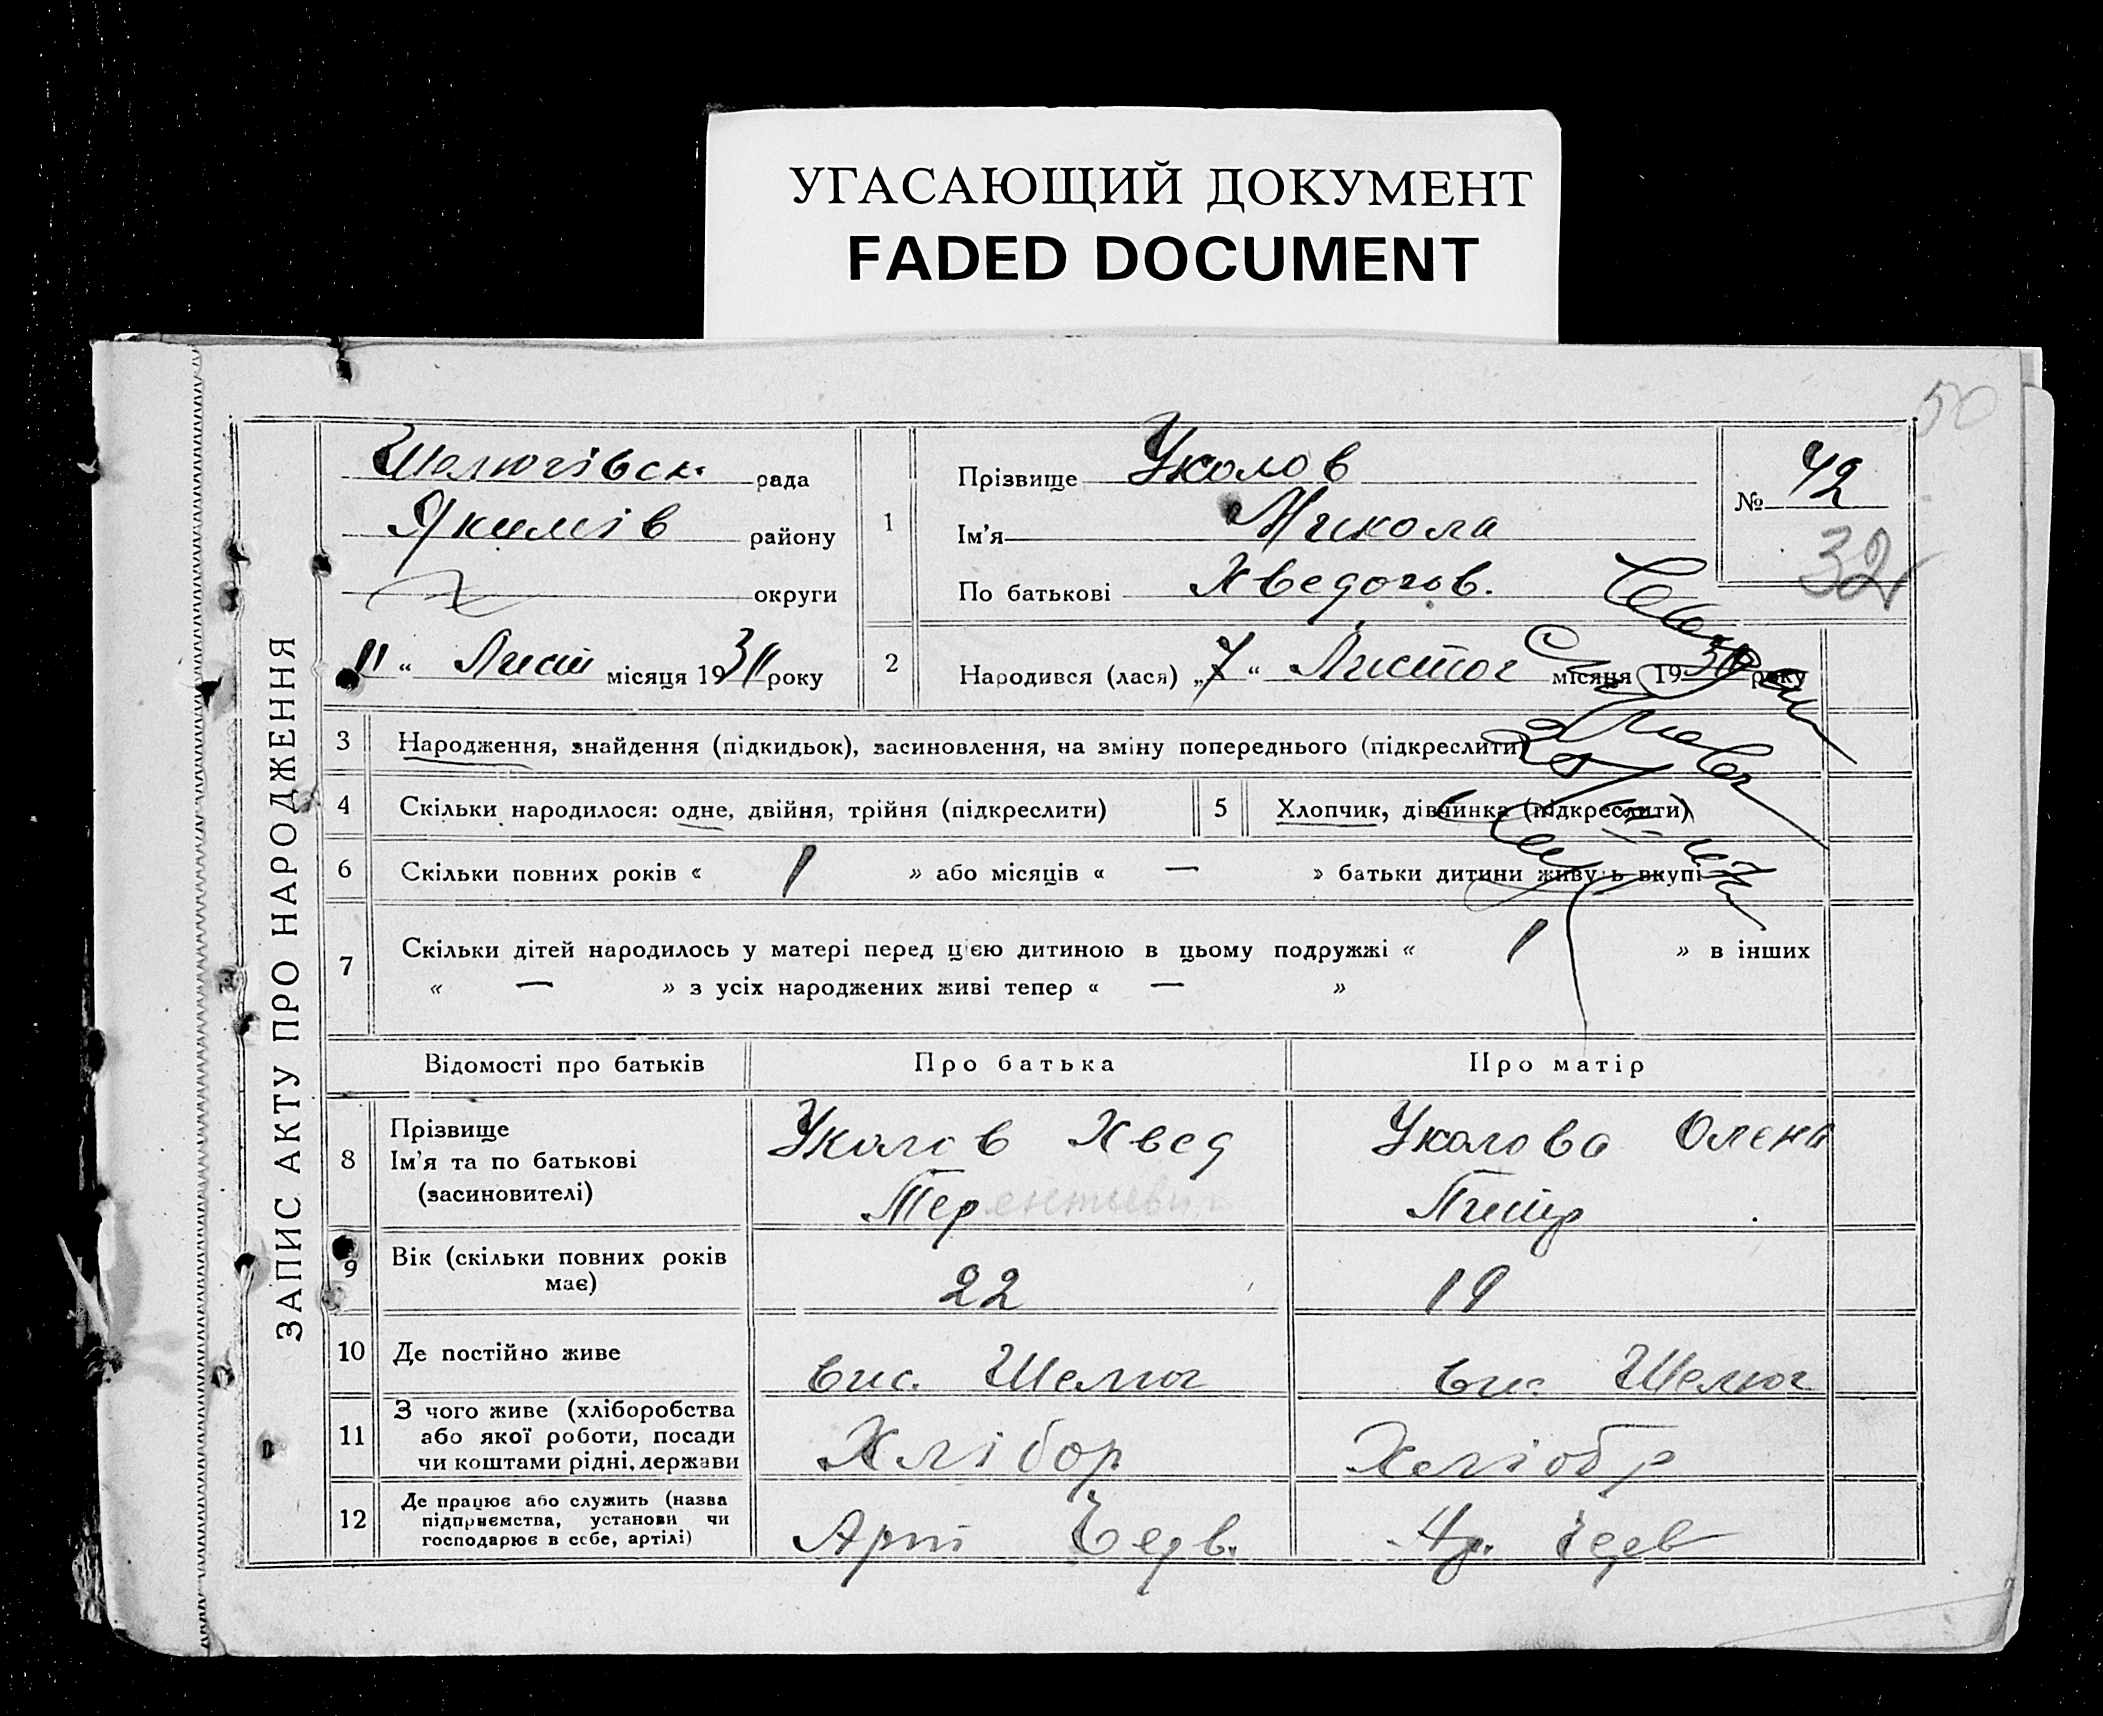 УГАСАЮЩИЙ ДОКУМЕНТ
FADED DOCUMENT
50
ЗАПИС АКТУ ПРО НАРОДЖЕННЯ
Шелюгівськ. рада
Якимів району
округи
11 “ Лист місяця 19 року
1
Прізвище Уколов
Ім'я Микола
По батькові Хведоров.
№ 42
32
2
Народився (лася) „7“ Листоп місяця 19 року
3 Народження, знайдення (підкидьок), засиновлення, на зміну попереднього (підкреслити)
4 Скільки народилося: одне, двійня, трійня (підкреслити) 5 Хлопчик, дівчинка (підкреслити)
6 Скільки повних років « 1 » або місяців « — » батьки дитини живуть вкупі
7 Скільки дітей народилось у матері перед цією дитиною в цьому подружжі « 1 » в інших
« — » з усіх народжених живі тепер « — »
Відомості про батьків Про батька Про матір
8 Прізвище
Ім'я та по батькові
(засиновителі)
Уколов Хвед
Терентьевич
Уколова Олена
9 Вік (скільки повних років
має)
22 19
10 Де постійно живе вис. Шелюг вис. Шелюг
11 З чого живе (хліборобства
або якої роботи, посади
чи коштами рідні, держави
Хлібор
12 Де працює або служить (назва
підприємства, установи чи
господарює в себе, артілі)
Арт